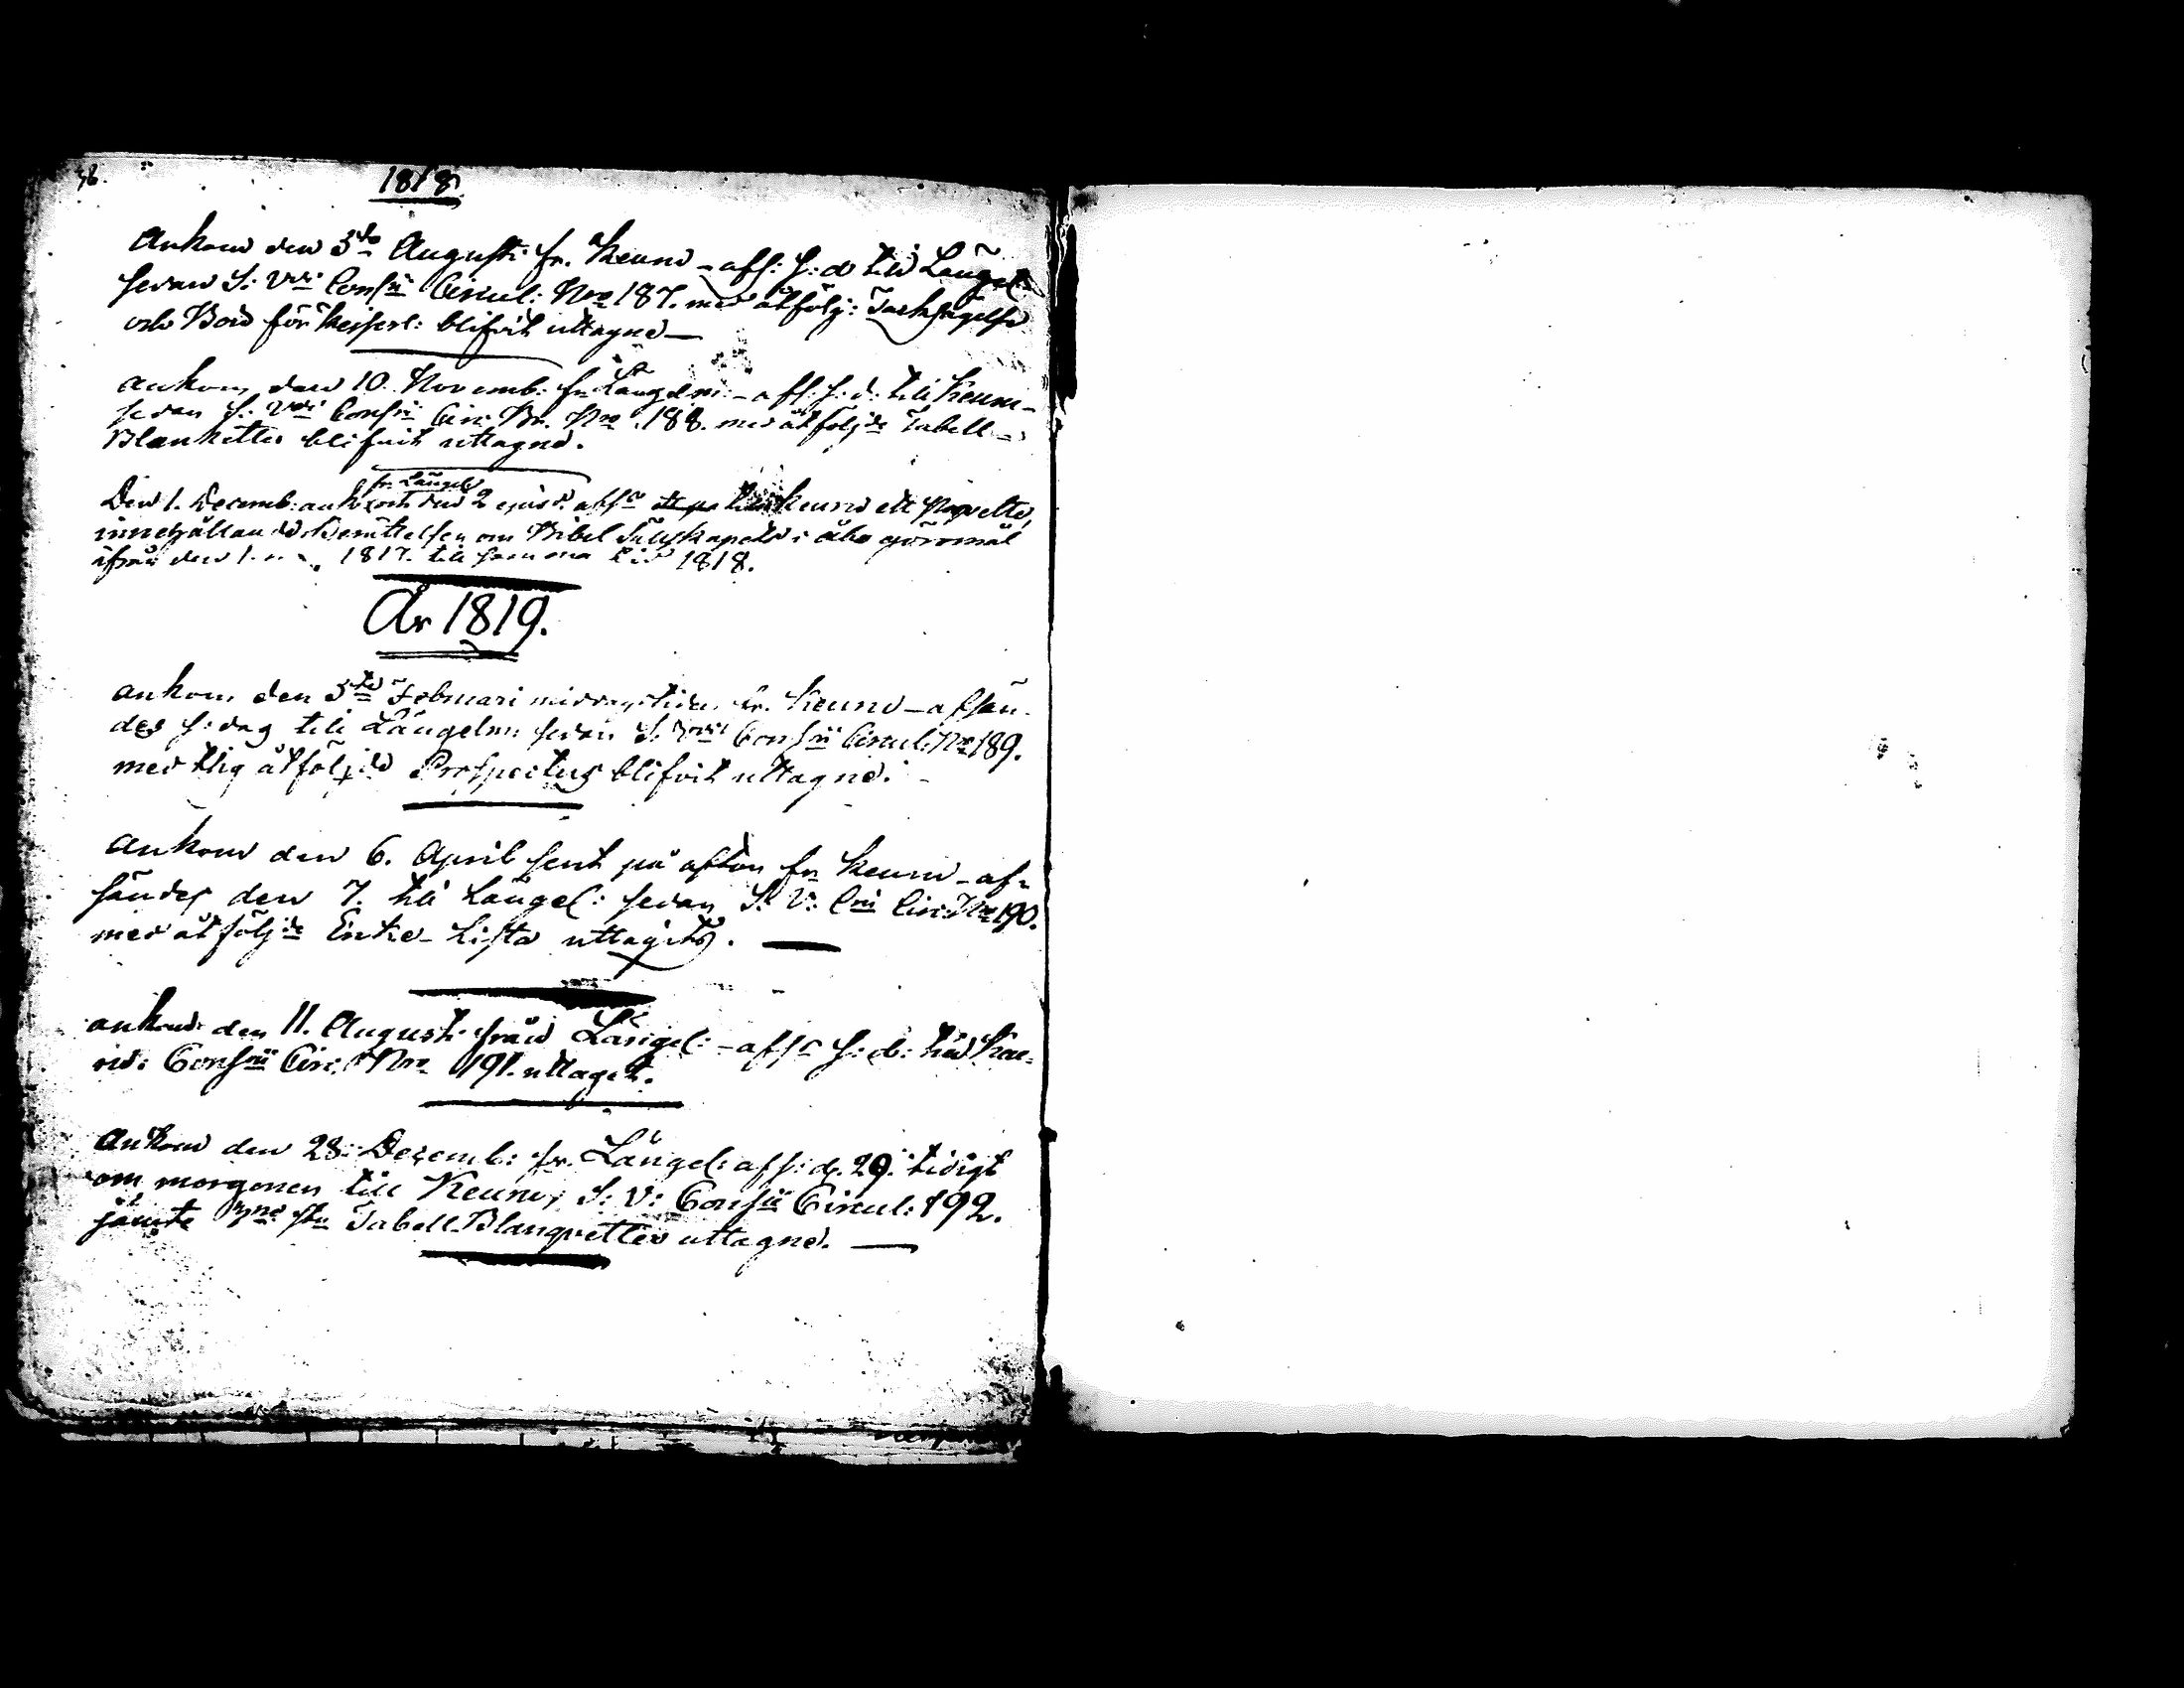 1818.
Ankom den 3de Augusti fr. Keuru – afs: s: d till Längel:
sedan S: Vdi Consii Circul: Nro 187. med åtfölj: Tacksägelse
och Bön för Keiserl: blifvit uttagne —
ankom den 10 Novemb: fr Längelm: – afs: s: d: till Keuru –
sedan S: Vdi Consii Circ: Br. Nro 188. med åtföljde Tabell –
Blanketter blifvit uttagne.
fr. Längelm
Den 1. Decemb: ankom och den 2 ejusd. afsr till Keuru ett Paquette,
innehållande Berättelsen om Bibel Sällskapets i Åbo göromål
ifrån den 1. 1817. till samma tid 1818.
År 1819.
ankom den 3de Februari middagstiden fr. Keuru – afsän-
des s: dag till Längelm: sedan S. Vdi Consii Circul: Nro 189.
med tlig åtföljde Prospectus blifvit uttagne.
Ankom den 6. April sent på afton fr Keuru – af-
sändes den 7. till Längel: sedan S. V: Cii Circ: Nro 190.
med åtföljde Lista uttagits. —
ankom den 11. Augusti från Längel: – afsr s: d: till Keu-
ru: Consii Circ: Nro 191. uttaget.
Ankom den 28: Decemb: fr. Längel: afs: d. 29. tidigt
om morgonen till Keuru, S: V: Consii Circul: 192.
jämte Tabell-Blanquetter uttagne. —